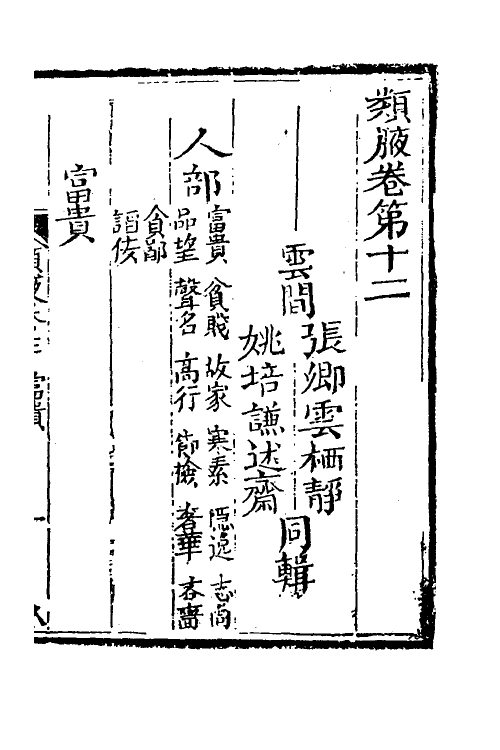 類腋卷第十二
雲間 張卿雲栖靜 姚培謙述齋 同輯
人部 富貴 貧賤 故家 寒素 隠逸 志尚
品望 聲名 高行 節儉 奢華 吝嗇
貪鄙
謟佞
富貴